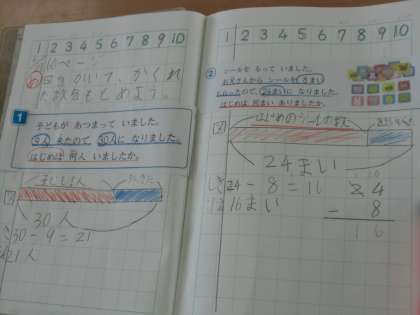 1 2 3 4 5 6 7 8 9 10
図をかいて、かくれ
た数をもとめよう。
1
子どもが あつまって いました。
9人 きたので、30人に なりました。
はじめは 何人 いましたか。
30人
30-9=21
21人
1 2 3 4 5 6 7 8 9 10
2
シールを もって いました。
お父さんから シールを 8まい
もらったので、24まいに なりました。
はじめは 何まい ありましたか。
はじめのシールの数
24まい
24-8=16
16まい
24
- 8
16